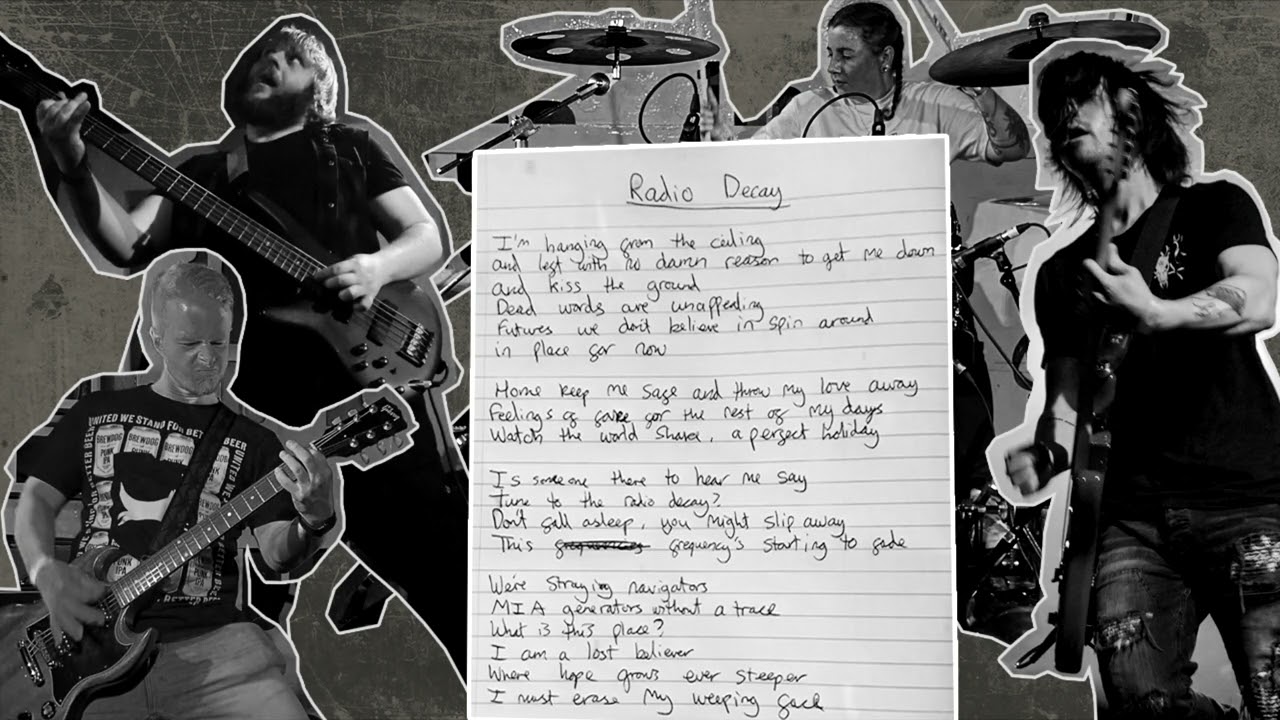 Radio Decay
I'm hanging from the ceiling
and left with no damn reason to get me down
and kiss the ground
Dead words are unappealing
Futures we don't believe in spin around
in place for now
Home keep me safe and throw my love away
Feelings of for the rest of my days
Watch the world , a perfect holiday
Is someone there to hear me say
Tune to the radio decay?
Don't fall asleep, you might slip away
This frequency's starting to fade
We're straying navigators
MIA generators without a trace
What is this place?
I am a lost believer
Where hope grows ever steeper
I must erase my weeping face
UNITED WE STAND FOR BET
BEER
BREWDOG
BREWDOG
BREWDOG
PUNK
IPA
Gibson